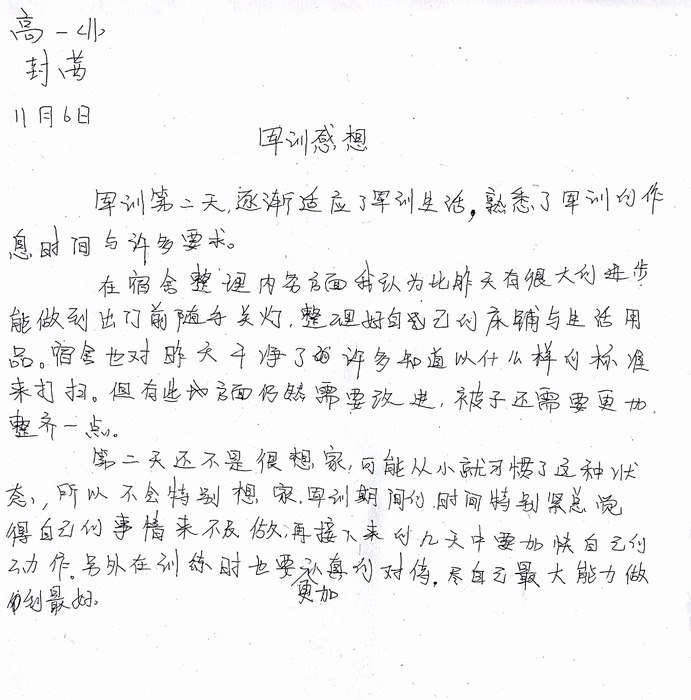 高一(11)
封茜
11月6日
军训感想
军训第二天,逐渐适应了军训生活,熟悉了军训的作
息时间与许多要求。
在宿舍整理内务方面我认为比昨天有很大的进步
能做到出门前随手关灯,整理好自己的床铺与生活用
品。宿舍也对昨天干净了许多知道以什么样的标准
来打扫。但有些地方面仍然需要改进,被子还需要更加
整齐一点。
第二天还不是很想家,可能从小就习惯了这种状
态,所以不会特别想家,军训期间的时间特别紧总觉
得自己的事情来不及做,再接下来的几天中要加快自己的
动作。另外在训练时也要认真的对待,尽自己最大能力做
更加
到最好.